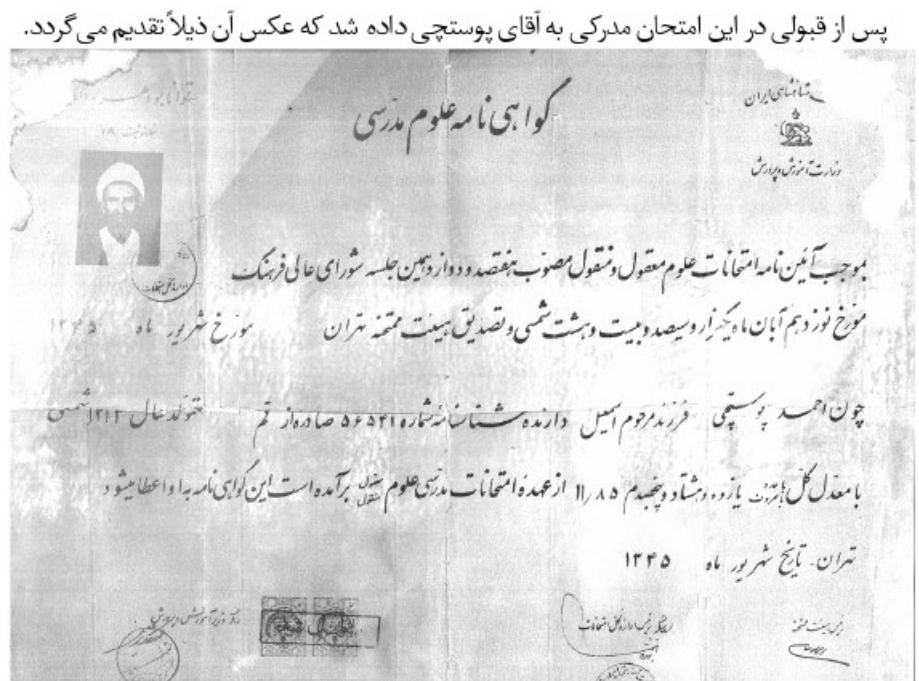 پس از قبولی در این امتحان مدرکی به آقای پوستچی داده شد که عکس آن ذیلاً تقدیم می‌گردد.
شاهنشاهی ایران
وزارت آموزش و پرورش
گواهی نامه علوم مدرسی
بموجب آئین نامه امتحانات علوم معقول و منقول مصوب هفتصد و دوازدهمین جلسه شورای عالی فرهنگ
مورخ نوزدهم آبان ماه یکهزار و سیصد و بیست و هشت شمسی و تصدیق هیئت ممتحنه تهران مورخ شهریور ماه ۱۳۴۵
چون احمد پوستچی فرزند مرحوم اسمعیل دارنده شناسنامه شماره ۵۶۵۴۱ صادره از قم متولد سال ۱۳۱۲ شمسی
با معدل کل یازده و هشتاد و پنجصدم ۱۱٫۸۵ از عهده امتحانات مدرسی علوم منقول برآمده است این گواهی نامه به او اعطا میشود
تهران - تاریخ شهریور ماه ۱۳۴۵
رئیس هیئت ممتحنه
رئیس اداره کل امتحانات
وزیر آموزش و پرورش